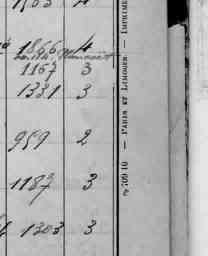 1866 4
1167 3
1331 3
959 2
1187 3
1303 3
709 10 — PARIS ET LIMOGES. — IMPRIME